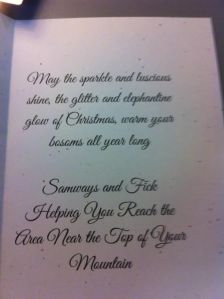 May the sparkle and luscious
shine, the glitter and elephantine
glow of Christmas, warm your
bosoms all year long
Samways and Fick
Helping You Reach the
Area Near the Top of Your
Mountain